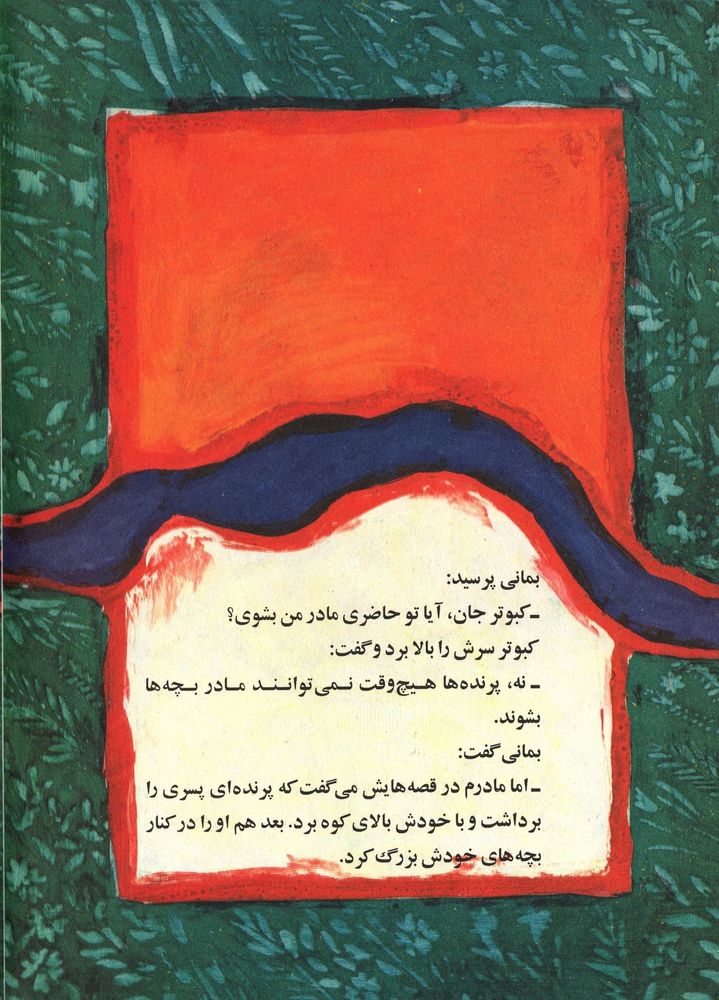 بمانی پرسید:
ـ کبوتر جان، آیا تو حاضری مادر من بشوی؟
کبوتر سرش را بالا برد و گفت:
ـ نه، پرنده‌ها هیچ‌وقت نمی‌توانند مادر بچه‌ها
بشوند.
بمانی گفت:
ـ اما مادرم در قصه‌هایش می‌گفت که پرنده‌ای پسری را
برداشت و با خودش بالای کوه برد. بعد هم او را در کنار
بچه‌های خودش بزرگ کرد.